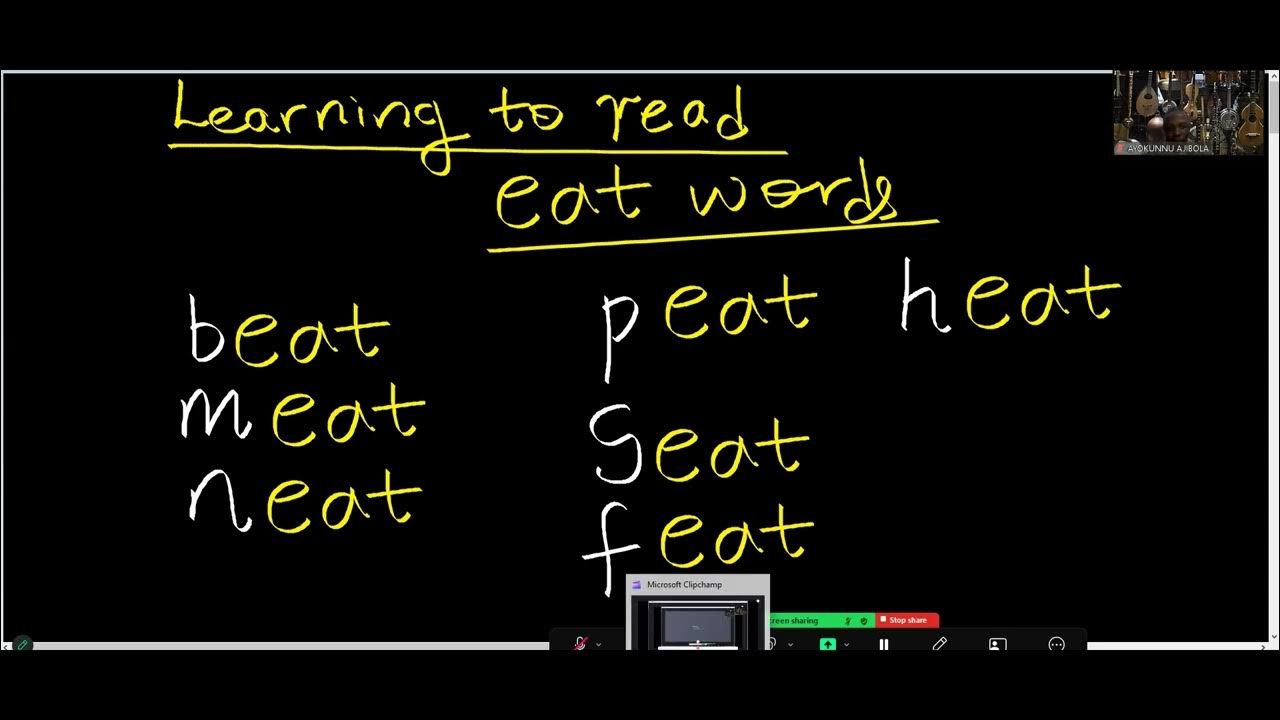 Learning to read
eat words
AYOKUNNU AJIBOLA
beat
meat
neat
peat
seat
feat
heat
Microsoft Clipchamp
creen sharing
Stop share